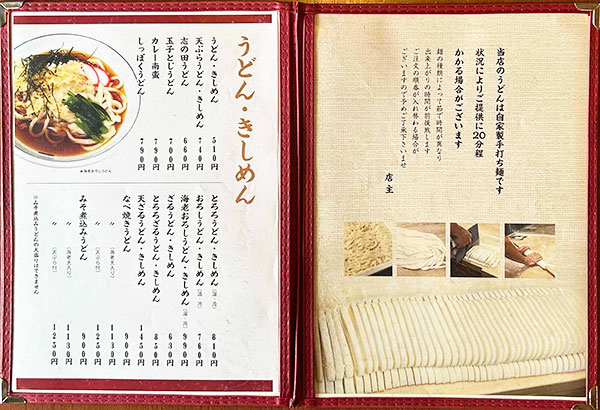 うどん・きしめん
うどん・きしめん 510円
天ぷらうどん・きしめん 740円
志の田うどん 660円
玉子とじうどん 700円
カレー南蛮 790円
しっぽくうどん 790円
※海老おろしうどん
とろろうどん・きしめん(温・冷) 810円
おろしうどん・きしめん(温・冷) 760円
海老おろしうどん・きしめん(温・冷) 990円
ざるうどん・きしめん 630円
とろろざるうどん・きしめん 850円
天ざるうどん・きしめん 1450円
なべ焼きうどん 900円
〃(海老天入り) 1130円
〃(天ぷら付) 1250円
みそ煮込みうどん 900円
〃(海老天入り) 1130円
〃(天ぷら付) 1250円
※みそ煮込みうどんの大盛りはできません
当店のうどんは自家製手打ち麺です
状況によりご提供に20分程
かかる場合がございます
麺の種類によって茹で時間が異なり
出来上がりの時間が前後致します
ご注文の順番が入れ替わる場合が
ございますので予めご了承下さいませ
店主